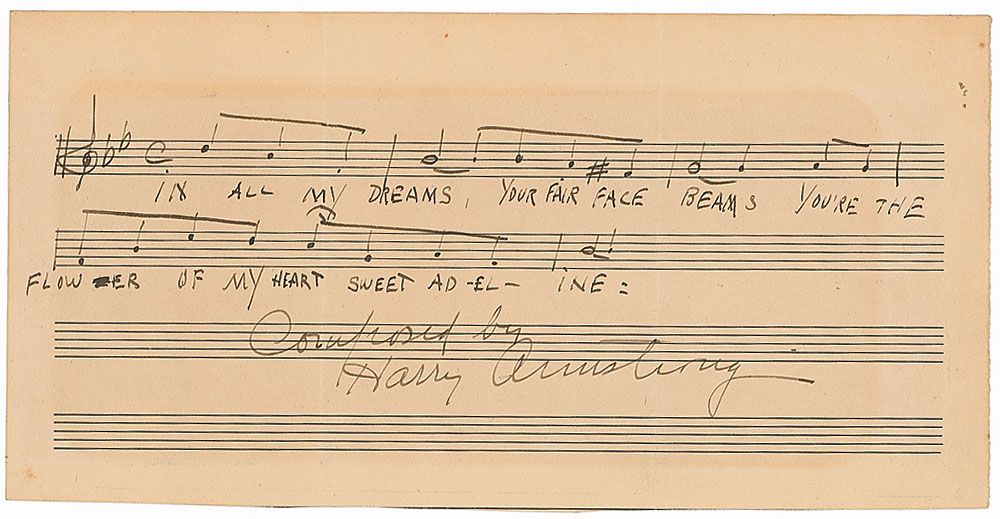 IN ALL MY DREAMS, YOUR FAIR FACE BEAMS YOU'RE THE
FLOW-ER OF MY HEART SWEET AD-EL- INE:
Composed by
Harry Armstrong